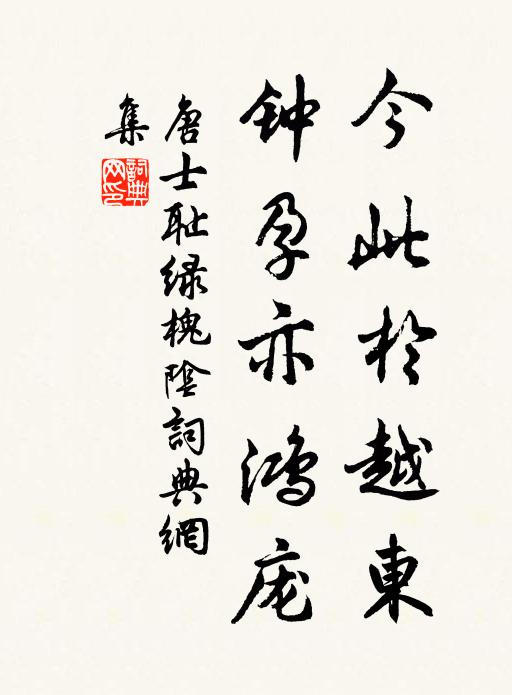 今此於越東
钟孕亦鸿庞
唐士耻绿槐陰詞典網
集
詞典網印